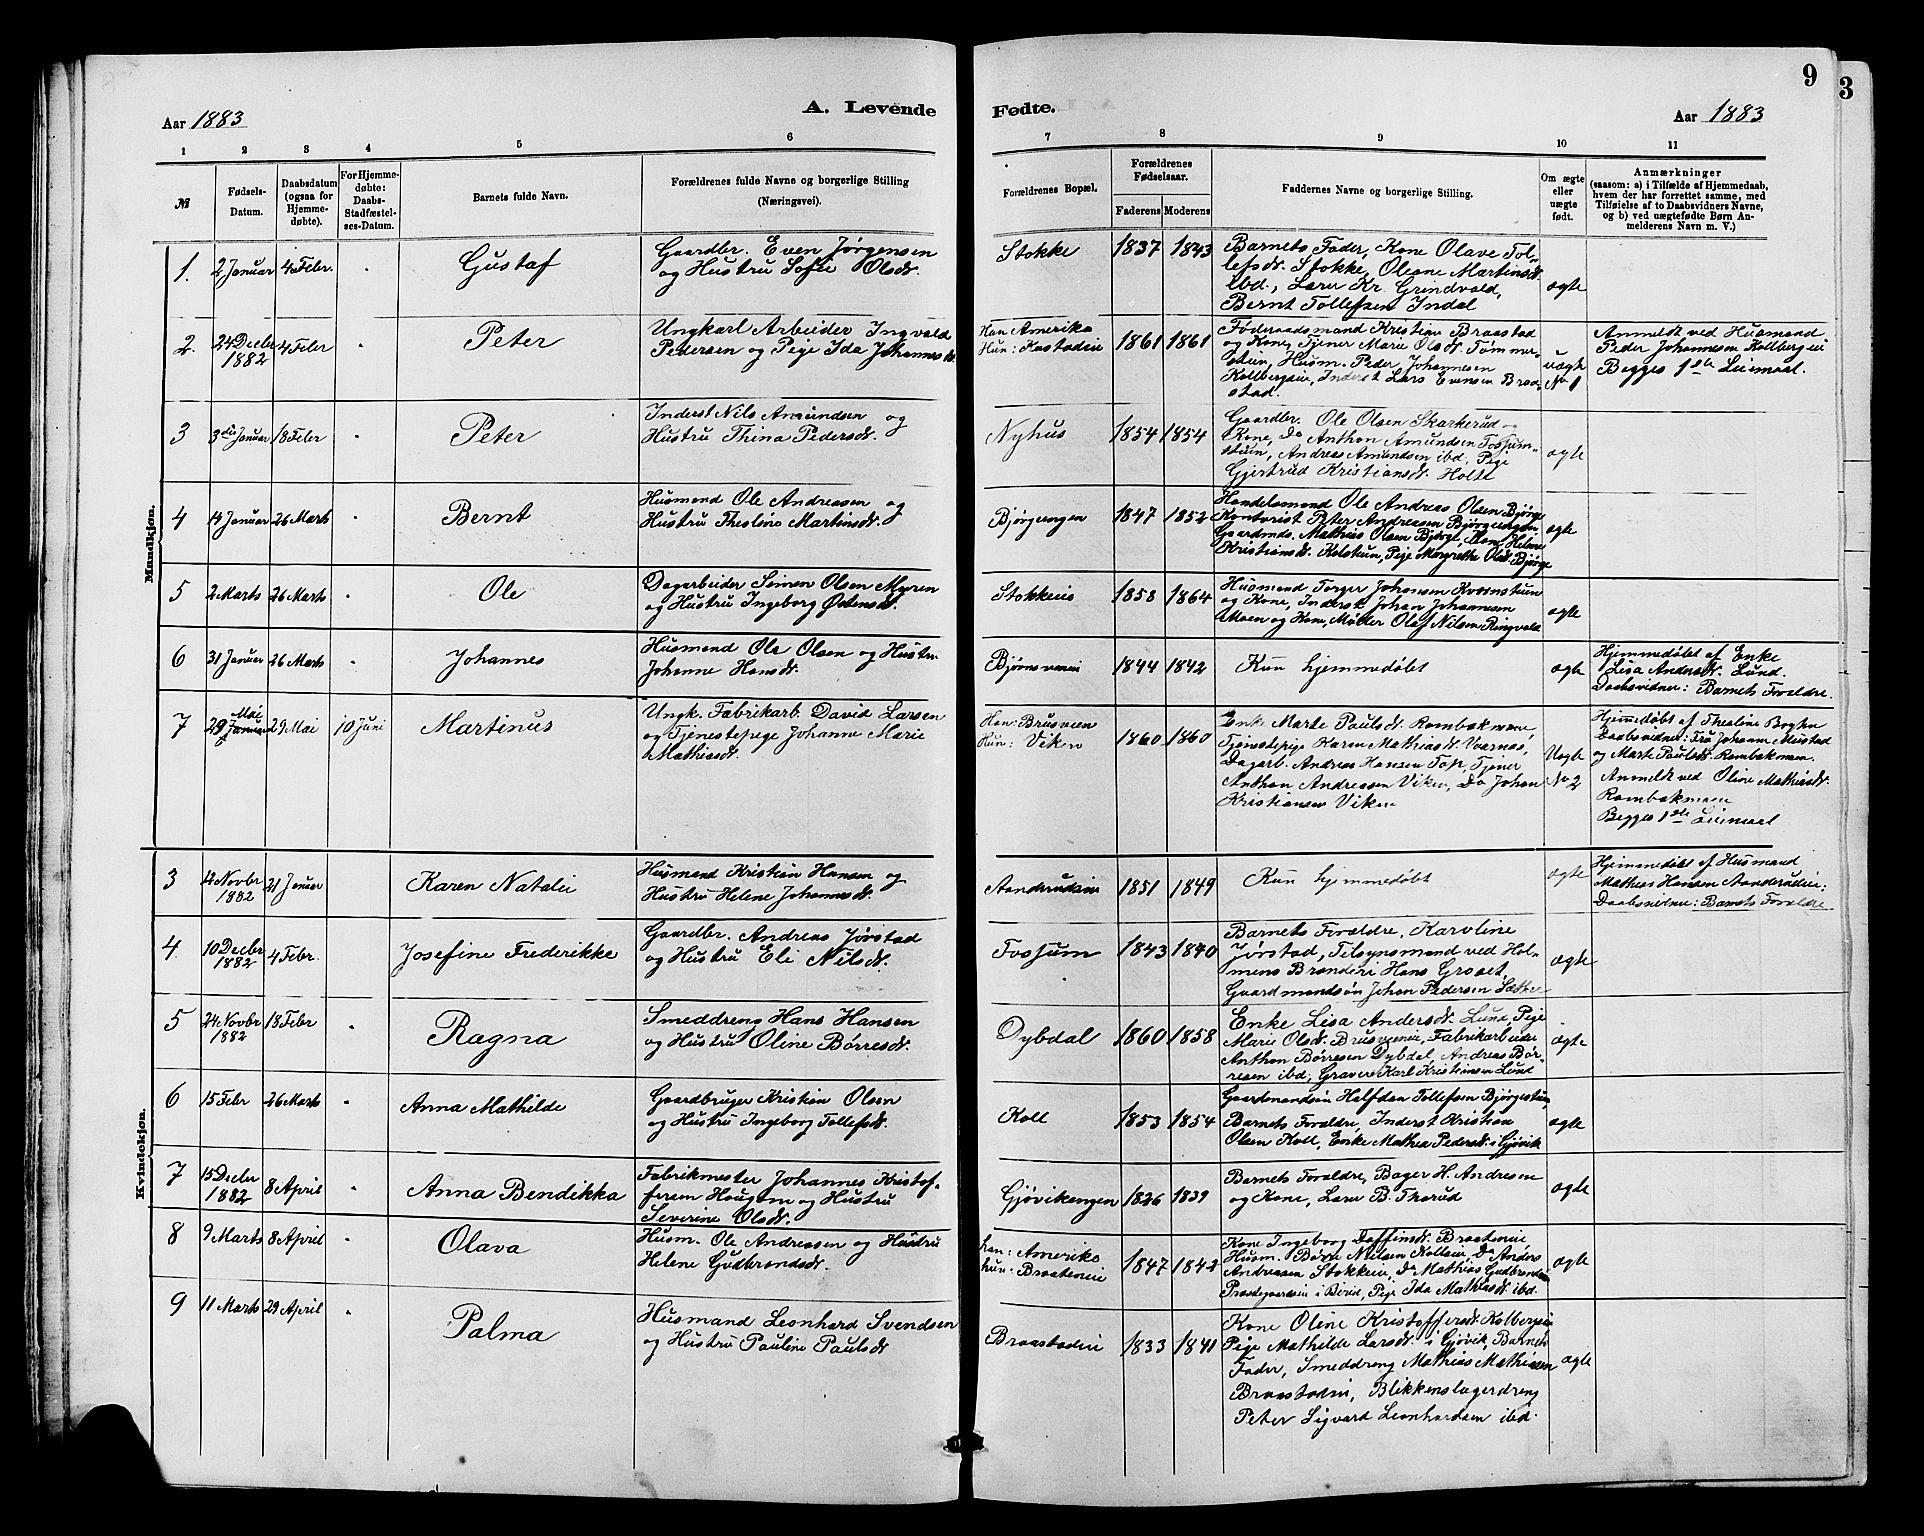 9
3
Aar 1883
A. Levende
Fødte.
Aar 1883
1 2 3 4 5 6 7 8 9 10 11
№
Fødsels-
Datum.
Daabsdatum
(ogsaa for
Hjemme-
døbte).
For Hjemme-
døbte:
Daabs-
Stadfæstel-
ses-Datum.
Barnets fulde Navn.
Forældrenes fulde Navne og borgerlige Stilling
(Næringsvei).
Forældrenes Bopæl.
Forældrenes
Fødselsaar.
Faderens Moderens
Faddernes Navne og borgerlige Stilling.
Om ægte
eller
uægte
født.
Anmærkninger
(saasom: a) i Tilfælde af Hjemmedaab,
hvem der har forrettet samme, med
Tilføielse af to Daabsvidners Navne,
og b) ved uægtefødte Børn An-
melderens Navn m. V.)
Mandkjøn.
1. 2 Januar 4 Febr. Gustaf
Gaardbr. Even Jørgensen
og Hustru Sofie Olsdr.
Stokke 1837 1843
Barnets Fader, Kone Olave Tol-
lefsdr. Stokke, Oleane Martinsdr.
ibd., Lars Kr. Grindvold,
Bernt Tollefsen Indal
ægte
2. 24 Decbr 1882 4 Febr Peter
Ungkarl Arbeider Ingvald
Pedersen og Pige Ida Johannesdr.
Han Amerika
Hun: Kastadeie
1861 1861
Føderaadsmand Kristian Braastad
og Kone, Tjener Marie Olsdr. Tømmer-
stuen, Husm. Peder Johannesen
Kolbergeie, Inderst Lars Evensen Braa-
stad.
uægte
No 1
Anmeldt ved Husmand
Peder Johannesen Kolbergeie
Begges 1ste Leiemaal.
3 3die Januar 18 Febr Peter
Inderst Nils Amundsen og
Hustru Thina Pedersdr.
Nyhus 1854 1854
Gaardbr. Ole Olsen Skarkerud og
Kone, Do Anthon Amundsen Fossum-
stuen, Andreas Amundsen ibd. Pige
Gjertrud Kristiansdr. Holte
ægte
4 14 Januar 26 Marts Bernt
Husmand Ole Andreasen og
Hustru Theoline Martinsdr.
Bjørgeengen 1847 1852
Handelsmand Ole Andreas Olsen Bjørge
Kontorist Peter Andreasen Bjørgeengen
Gaardmds. Mathias Olsen Bjørge, Kone Helene
Kristiansdr. Kolstuen, Pige Margrethe Olsdr. Bjørge
ægte
5 2 Marts 26 Marts Ole
Dagarbeider Simen Olsen Myren
og Hustru Ingeborg Østensdr.
Stokkeeie 1858 1864
Husmand Torger Johansen Kvernstuen
og Kone, Inderst Johan Johannesen
Moen og Kone, Møller Olaf Nilsen Ringvold
ægte
6 31 Januar 26 Marts Johannes
Husmand Ole Olsen og Hustru
Johanne Hansdr.
1844 1842
Kun hjemmedøbt
ægte
Hjemmedøbt af Enke
Lisa Andersdr. Lund.
Daabsvidner: Barnets Forældre.
7 29 Mai 29 Mai 10 Juni Martinus
Ungk. Fabrikarb. David Larsen
og Tjenestepige Johanne Marie
Mathiasdr.
Han: Brusveen
Hun: Viken
1860 1860
Enke Marte Paulsdr. Rambækmoen,
Tjenestepige Karen Mathiasdr. Vaarnæs,
Dagarb. Andreas Hansen Tap, Tjener
Anthon Andreassen Viken, Do Johan
Kristiansen Viken
Uægte
No 2
Hjemmedøbt af Thealine Beghn
Daabsvidner: Fru Johanne Mustad
og Marte Paulsdr. Rambækmoen.
Anmeldt ved Oline Mathiasdr.
Rambækmoen
Begges 1ste Leiemaal
Kvindekjøn.
3 12 Novbr 1882 21 Januar Karen Natalie
Husmand Kristian Hansen og
Hustru Helene Johannesdr.
Aanderudeie 1851 1849
Kun hjemmedøbt
ægte
Hjemmedøbt af Husmand
Mathias Hansen Aanderudeie:
Daabsvidner: Barnets Forældre
4. 10 Decbr 1882 4 Febr. Josefine Frederikke
Gaardbr. Andreas Jørstad
og Hustru Eli Nilsdr.
Fossum 1843 1840
Barnets Forældre, Karoline
Jørstad, Tilsynsmand ved Hol-
mens Brænderi Hans Graaet,
Gaardmandsøn Johan Pedersen Sæthre
ægte
5 24 Novbr 1882 18 Febr Ragna
Smeddreng Hans Hansen
og Hustru Oline Børresdr.
Dybdal 1860 1858
Enke Lisa Andersdr. Lund, Pige
Marie Olsdr. Brusveeneie, Fabrikarbeider
Anthon Børresen Dybdal, Andreas Bør-
resen ibd, Graver Karl Kristiansen Lund
ægte
6 15 Febr 26 Marts Anna Mathilde
Gaardbruger Kristian Olsen
og Hustru Ingeborg Tollefsdr.
Koll 1853 1854
Gaardmandsøn Halfdan Tollefsen Bjørgestuen,
Barnets Forældre, Inderst Kristian
Olsen Koll, Enke Mathea Pedersdr. i Gjøvik
ægte
7 15 Decbr 1882 8 April Anna Bendikka
Fabrikmester Johannes Kristof-
fersen Haugom og Hustru
Severine Olsdr.
Gjøvikengen 1826 1839
Barnets Forældre, Bager H. Andresen
og Kone, Lars B. Thorud
ægte
8 9 Marts 8 April Olava
Husm. Ole Andreassen og Hustru
Helene Gudbrandsdr.
han: Amerika
hun: Braateneie
1847 1842
Kone Ingeborg Daffinsdr. Braateneie,
Husm. Børre Nielsen Kolseie, Do Anders
Andreassen Stokkeeie, Do Mathias Gudbrandsen
Præstegaardseie i Berid, Pige Ida Mathiasdr. ibd.
ægte
9 11 Marts 29 April Palma
Husmand Leonhard Svendsen
og Hustru Pauline Paulsdr
Braastadeie 1833 1841
Kone Oline Kristoffersdr. Kolbergeie
Pige Mathilde Larsdr. i Gjøvik, Barnets
Fader, Smeddreng Mathias Mathisen
Braastadeie, Blikkenslagerdreng
Peter Sigvard Leonhardsen ibd.
ægte